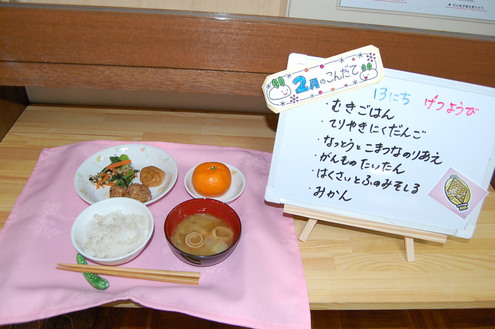 2月のこんだて
13にち げつようび
・むぎごはん
・てりやきにくだんご
・なっとうとこまつなのりあえ
・がんものたいたん
・はくさいとふのみそしる
・みかん